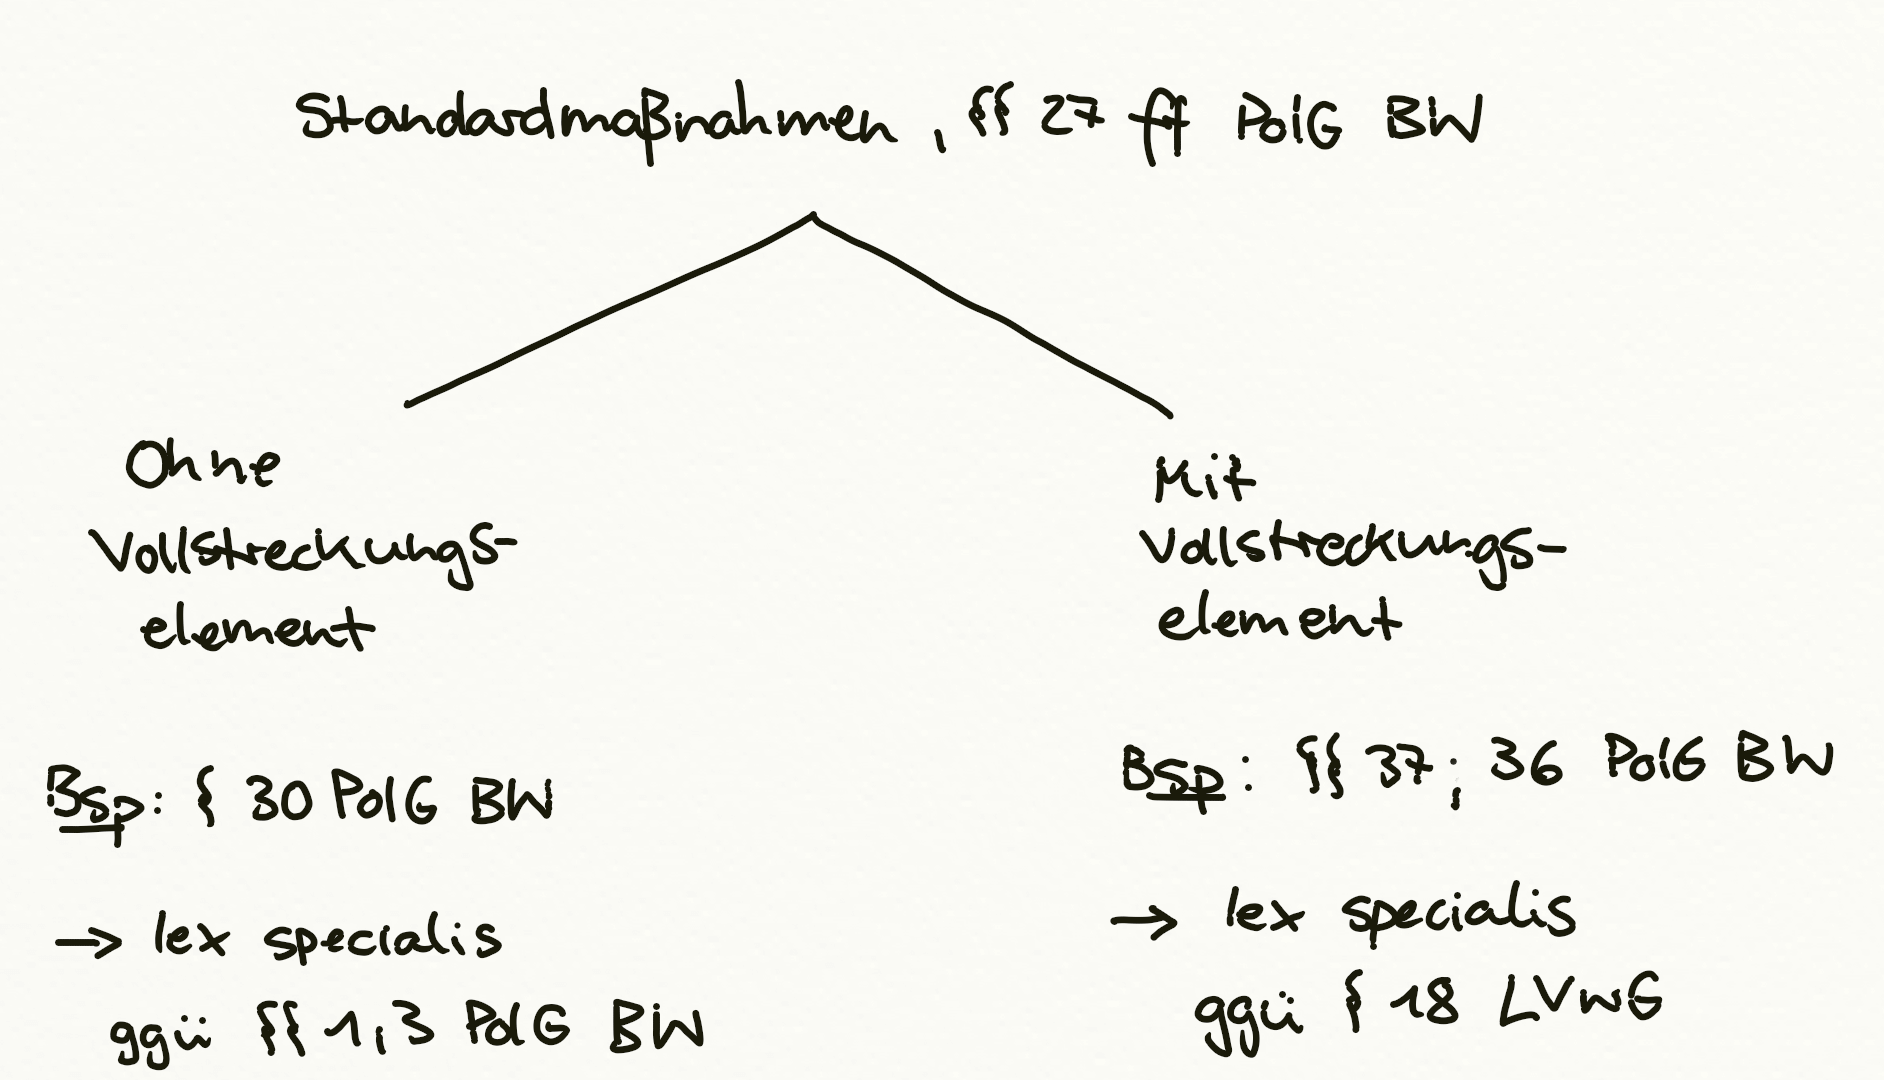 Standardmaßnahmen, §§ 27 ff PolG BW
Ohne
Vollstreckungs-
element
Bsp: § 30 PolG BW
→ lex specialis
ggü §§ 1, 3 PolG BW
Mit
Vollstreckungs-
element
Bsp: §§ 37; 36 PolG BW
→ lex specialis
ggü § 18 LVwG